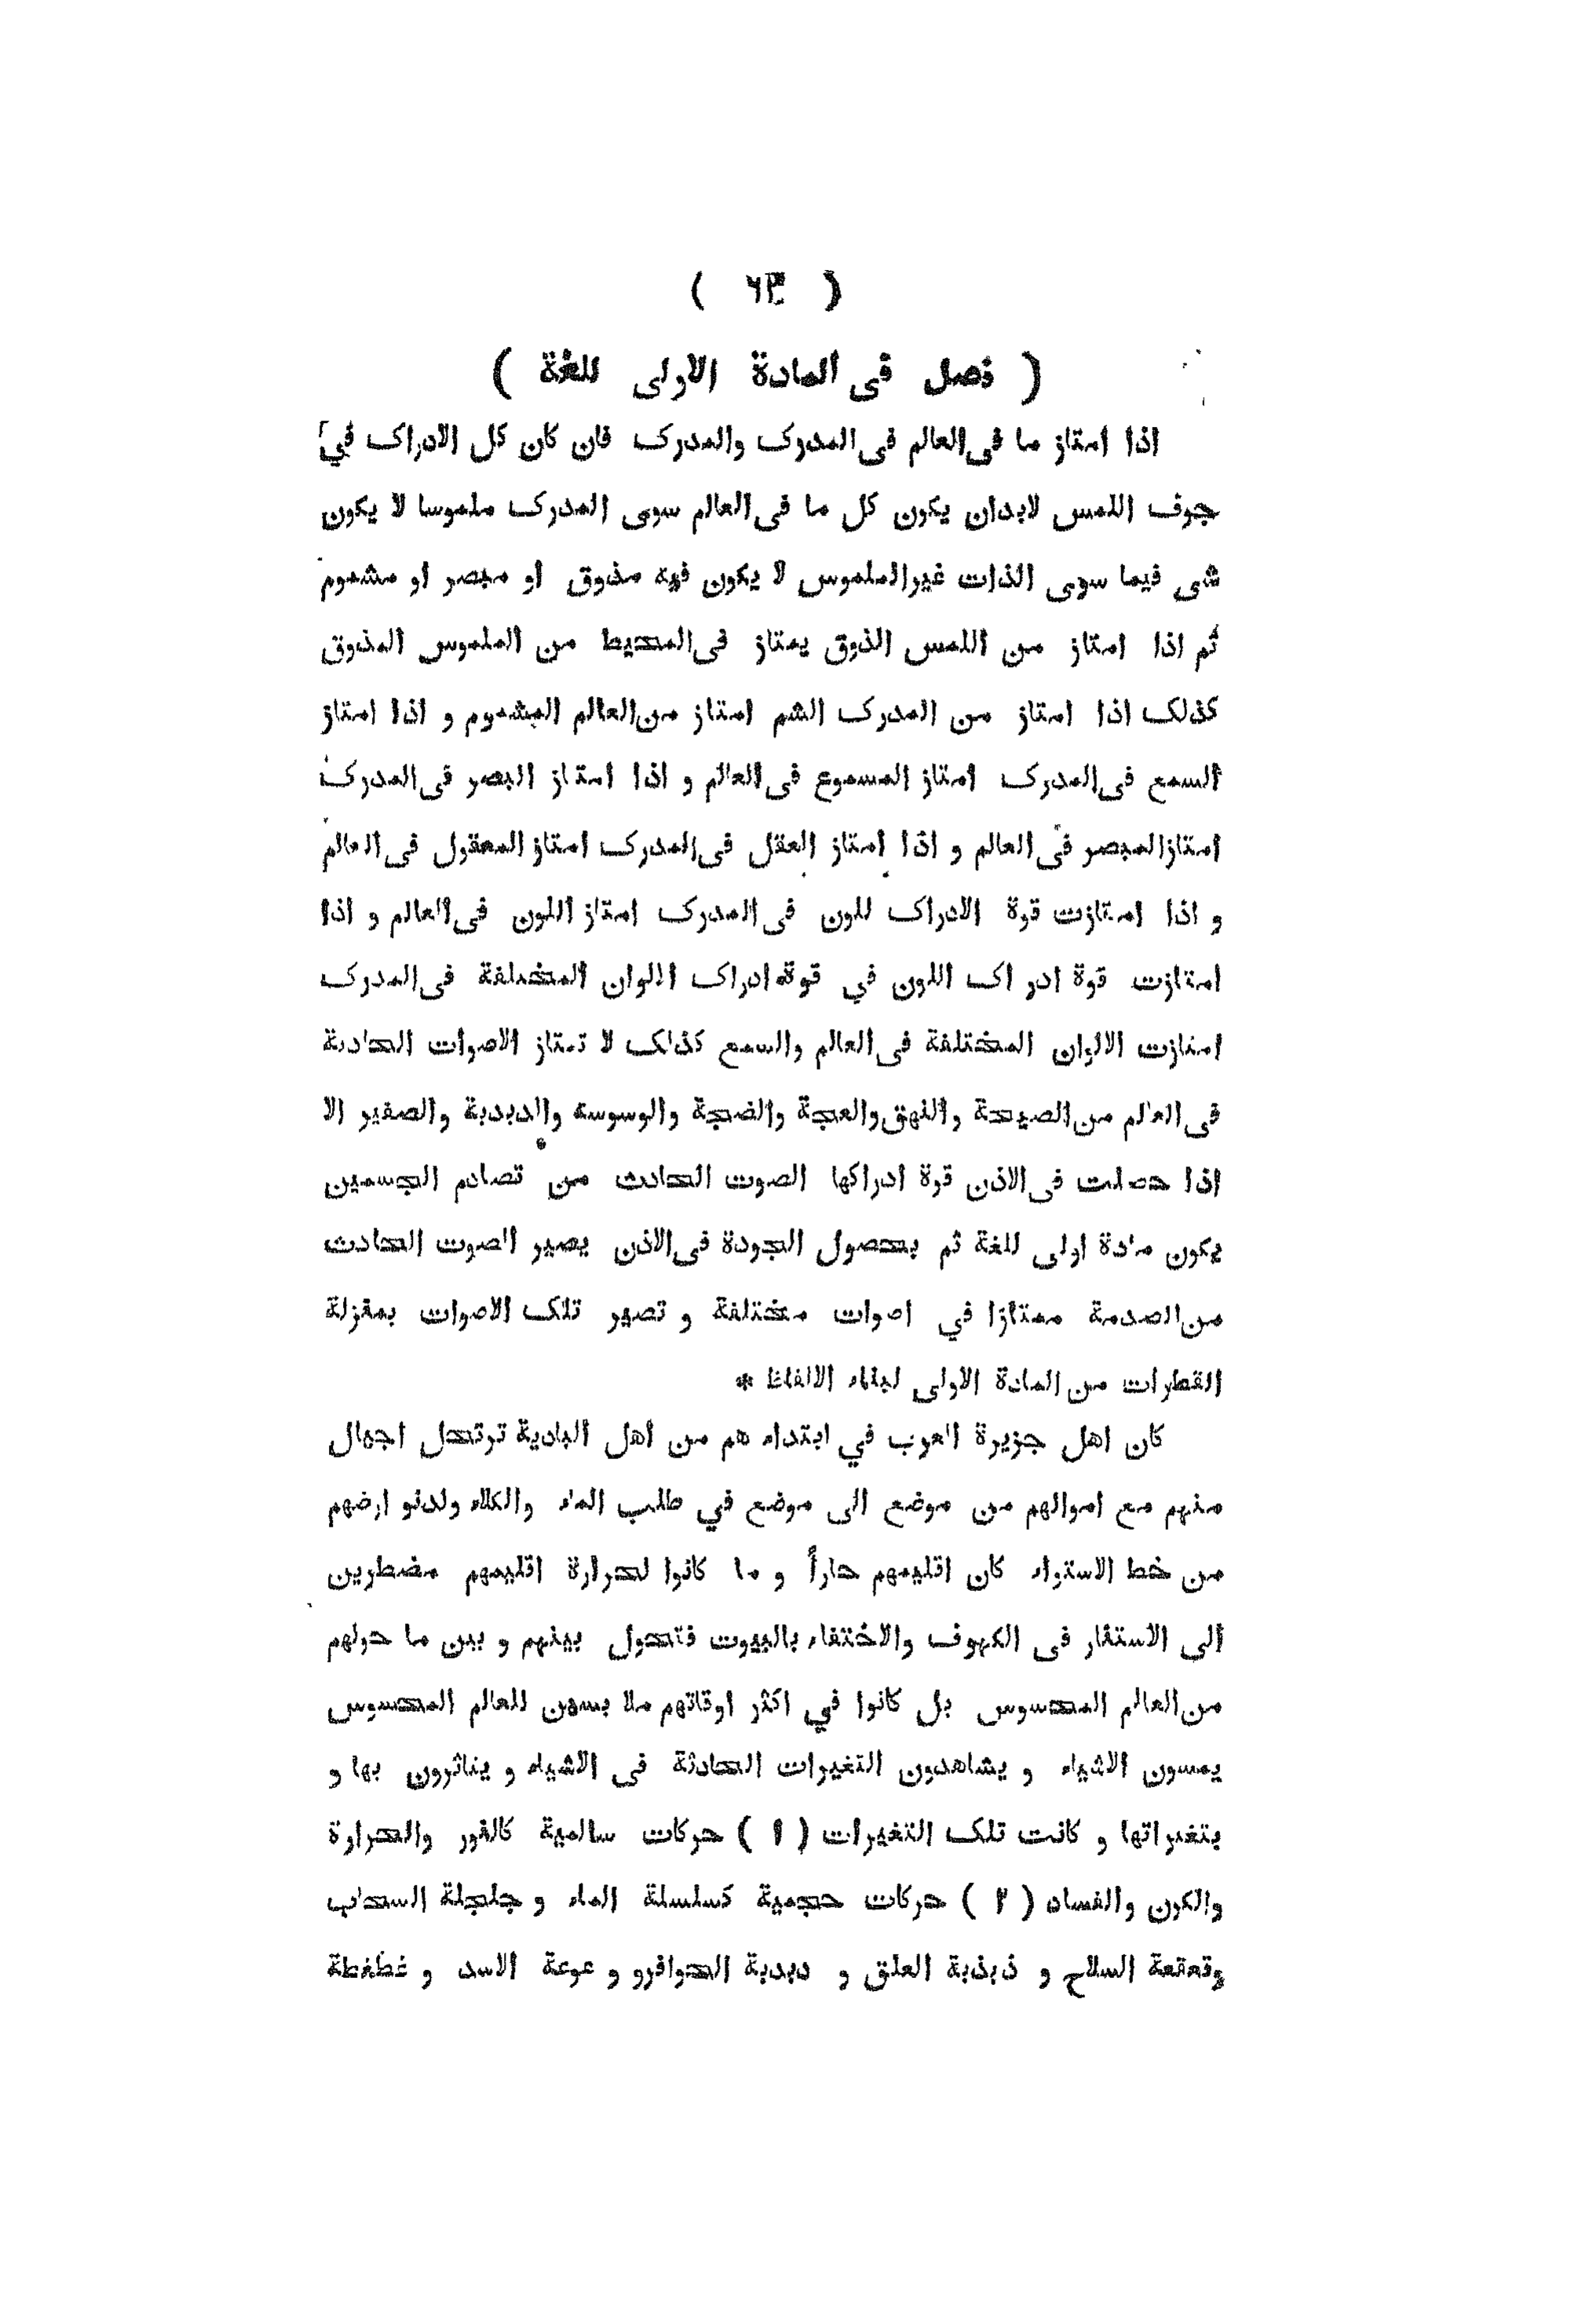 ( ٦٣ )
( فصل فى المادة الاولى للغة )
اذا امتاز ما فى العالم فى المدرك والمدرك فان كان كل الادراك في
جوف اللمس لابدان يكون كل ما فى العالم سوى المدرك ملموسا لا يكون
شى فيما سوى الذات غير الملموس لا يكون فيه مذوق او مبصر او مشموم
ثم اذا امتاز من اللمس الذوق يمتاز فى المحيط من الملموس المذوق
كذلك اذا امتاز من المدرك الشم امتاز من العالم المشموم و اذا امتاز
السمع فى المدرك امتاز المسموع فى العالم و اذا امتاز البصر فى المدرك
امتاز المبصر فى العالم و اذا امتاز العقل فى المدرك امتاز المعقول فى العالم
و اذا امتازت قوة الادراك للون فى المدرك امتاز اللون فى العالم و اذا
امتازت قوة ادراك اللون في قوة ادراك الالوان المختلفة فى المدرك
امتازت الالوان المختلفة فى العالم والسمع كذلك لا تمتاز الاصوات الحادثة
فى العالم من الصيحة والنهق والعجة والضجة والوسوسة والدبدبة والصفير الا
اذا حصلت فى الاذن قوة ادراكها الصوت الحادث من تصادم الجسمين
يكون مادة اولى للغة ثم بحصول الجودة فى الاذن يصير الصوت الحادث
من الصدمة ممتازا في اصوات مختلفة و تصير تلك الاصوات بمنزلة
القطرات من المادة الاولى لبناء الالفاظ *
كان اهل جزيرة العرب في ابتداء هم من اهل البادية ترتحل اجمال
منهم مع اموالهم من موضع الى موضع في طلب الماء والكلاء ولدنو ارضهم
من خط الاستواء كان اقليمهم حاراً و ما كانوا لحرارة اقليمهم مضطرين
الى الاستتار فى الكهوف والاختفاء بالبيوت فتحول بينهم و بين ما حولهم
من العالم المحسوس بل كانوا في اكثر اوقاتهم ملا بسين للعالم المحسوس
يمسون الاشياء و يشاهدون التغيرات الحادثة فى الاشياء و يتاثرون بها و
بتغيراتها و كانت تلك التغيرات ( ١ ) حركات سالمية كالنور والحرارة
والكون والفساد ( ٢ ) حركات حجمية كسلسلة الماء و جلجلة السحاب
وقعقعة السلاح و ذبذبة العلق و دبدبة الحوافرو و عوعة الاسد و غطغطة